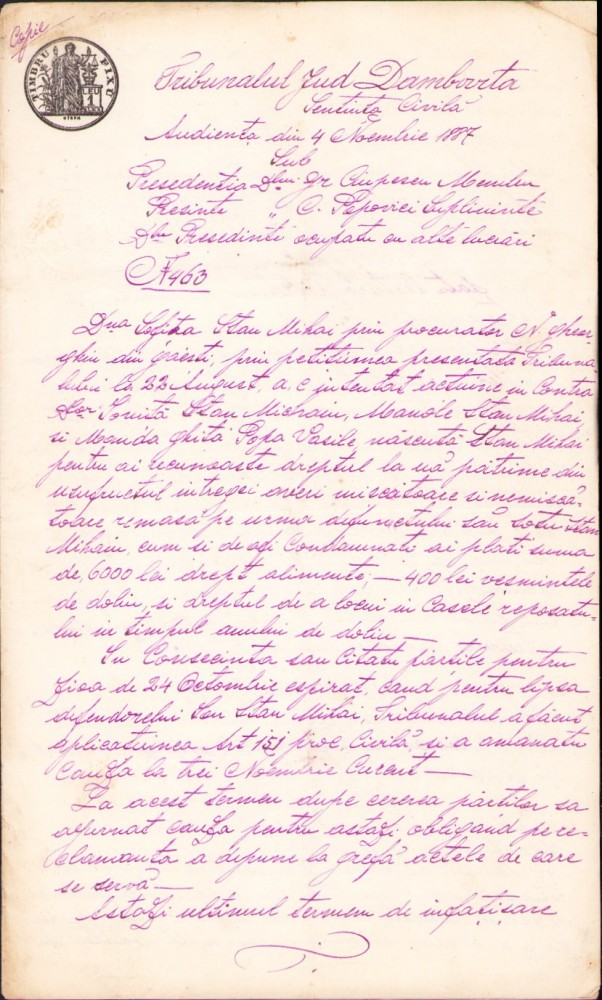 Copie
TIMBRU FIX
LEU 1
Tribunalul Jud Dambovita
Sentinta Civilă
Audienta din 4 Noembrie 1887
Sub
Presedentia Dlui Gr Ciupescu Membru
Presinte " C. Popovici Suplininte
Dlu Presedinte ocupatu cu alte lucrări
N 463
Dna Sofița Stan Mihai prin procurator N. Gheor-
ghiu din găesti, prin petitiunea presentată Tribuna-
lului la 22 August a. c intentat actiune in Contra
Dlor Ioniță Stan Michaiu, Manole Stan Mihai,
si Manda Ghiță Popa Vasile născută Stan Mihai
pentru ai recunoaste dreptul la uă pătrime din
usufructul intregei averi miscătoare si nemiscă-
toare remasă pe urma defunctului său sotu Stan
Mihaiu, cum si de a fi Condamnati ai plati suma
de, 6000 lei drept alimente, — 400 lei vesmintele
de doliu, si dreptul de a locui in Casele reposatu-
lui in timpul anului de doliu —
In Consecinta sau Citatu partile pentru
Zioa de 24 Octombrie espirat, cand pentru lipsa
defendorelui Ion Stan Mihai, Tribunalul a făcut
aplicatiunea Art 151 proc, Civilă, si a amanatu
Cauza la trei Noembrie Curent —
La acest termen dupe cererea partilor sa
asfernat cauza pentru astadi obligând pe re-
clamanta a depune la grefă actele de care
se servă —
Astadi ultimul termen de infațișare